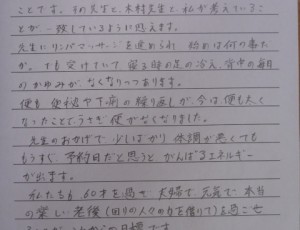 ことです。その先生と、木村先生と、私が考えていること
とが一致しているように思えます。
先生にリンパマッサージを進められ 始めは何の事だ
か。でも受けていて 寝る時の足の冷え、背中の毎日
のかゆみが なくなりつつあります。
便も 便秘や下痢の繰り返しが今は、便も太く
なったことでうさぎ便がなくなりました。
先生のおかげで 少しばかり 体調が悪くても
もうすぐ、予約日だと思うと がんばるエネルギー
が出ます。
私たちも 60才を過ぎ 夫婦で、元気で 本当
の楽しい老後(回りの人々の力を借りて)を過ごせ